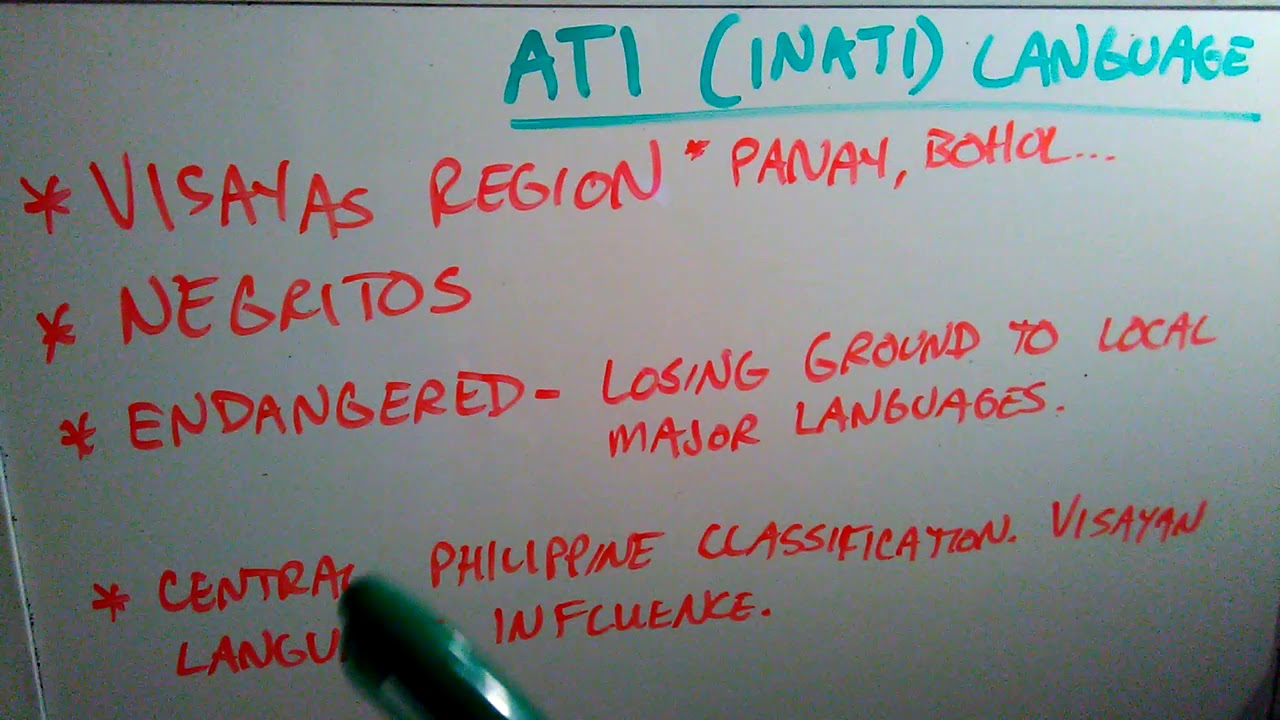 ATI (INATI) LANGUAGE
* VISAYAS REGION * PANAY, BOHOL...
* NEGRITOS
* ENDANGERED - LOSING GROUND TO LOCAL
MAJOR LANGUAGES.
* CENTRAL PHILIPPINE CLASSIFICATION. VISAYAN
INFLUENCE.